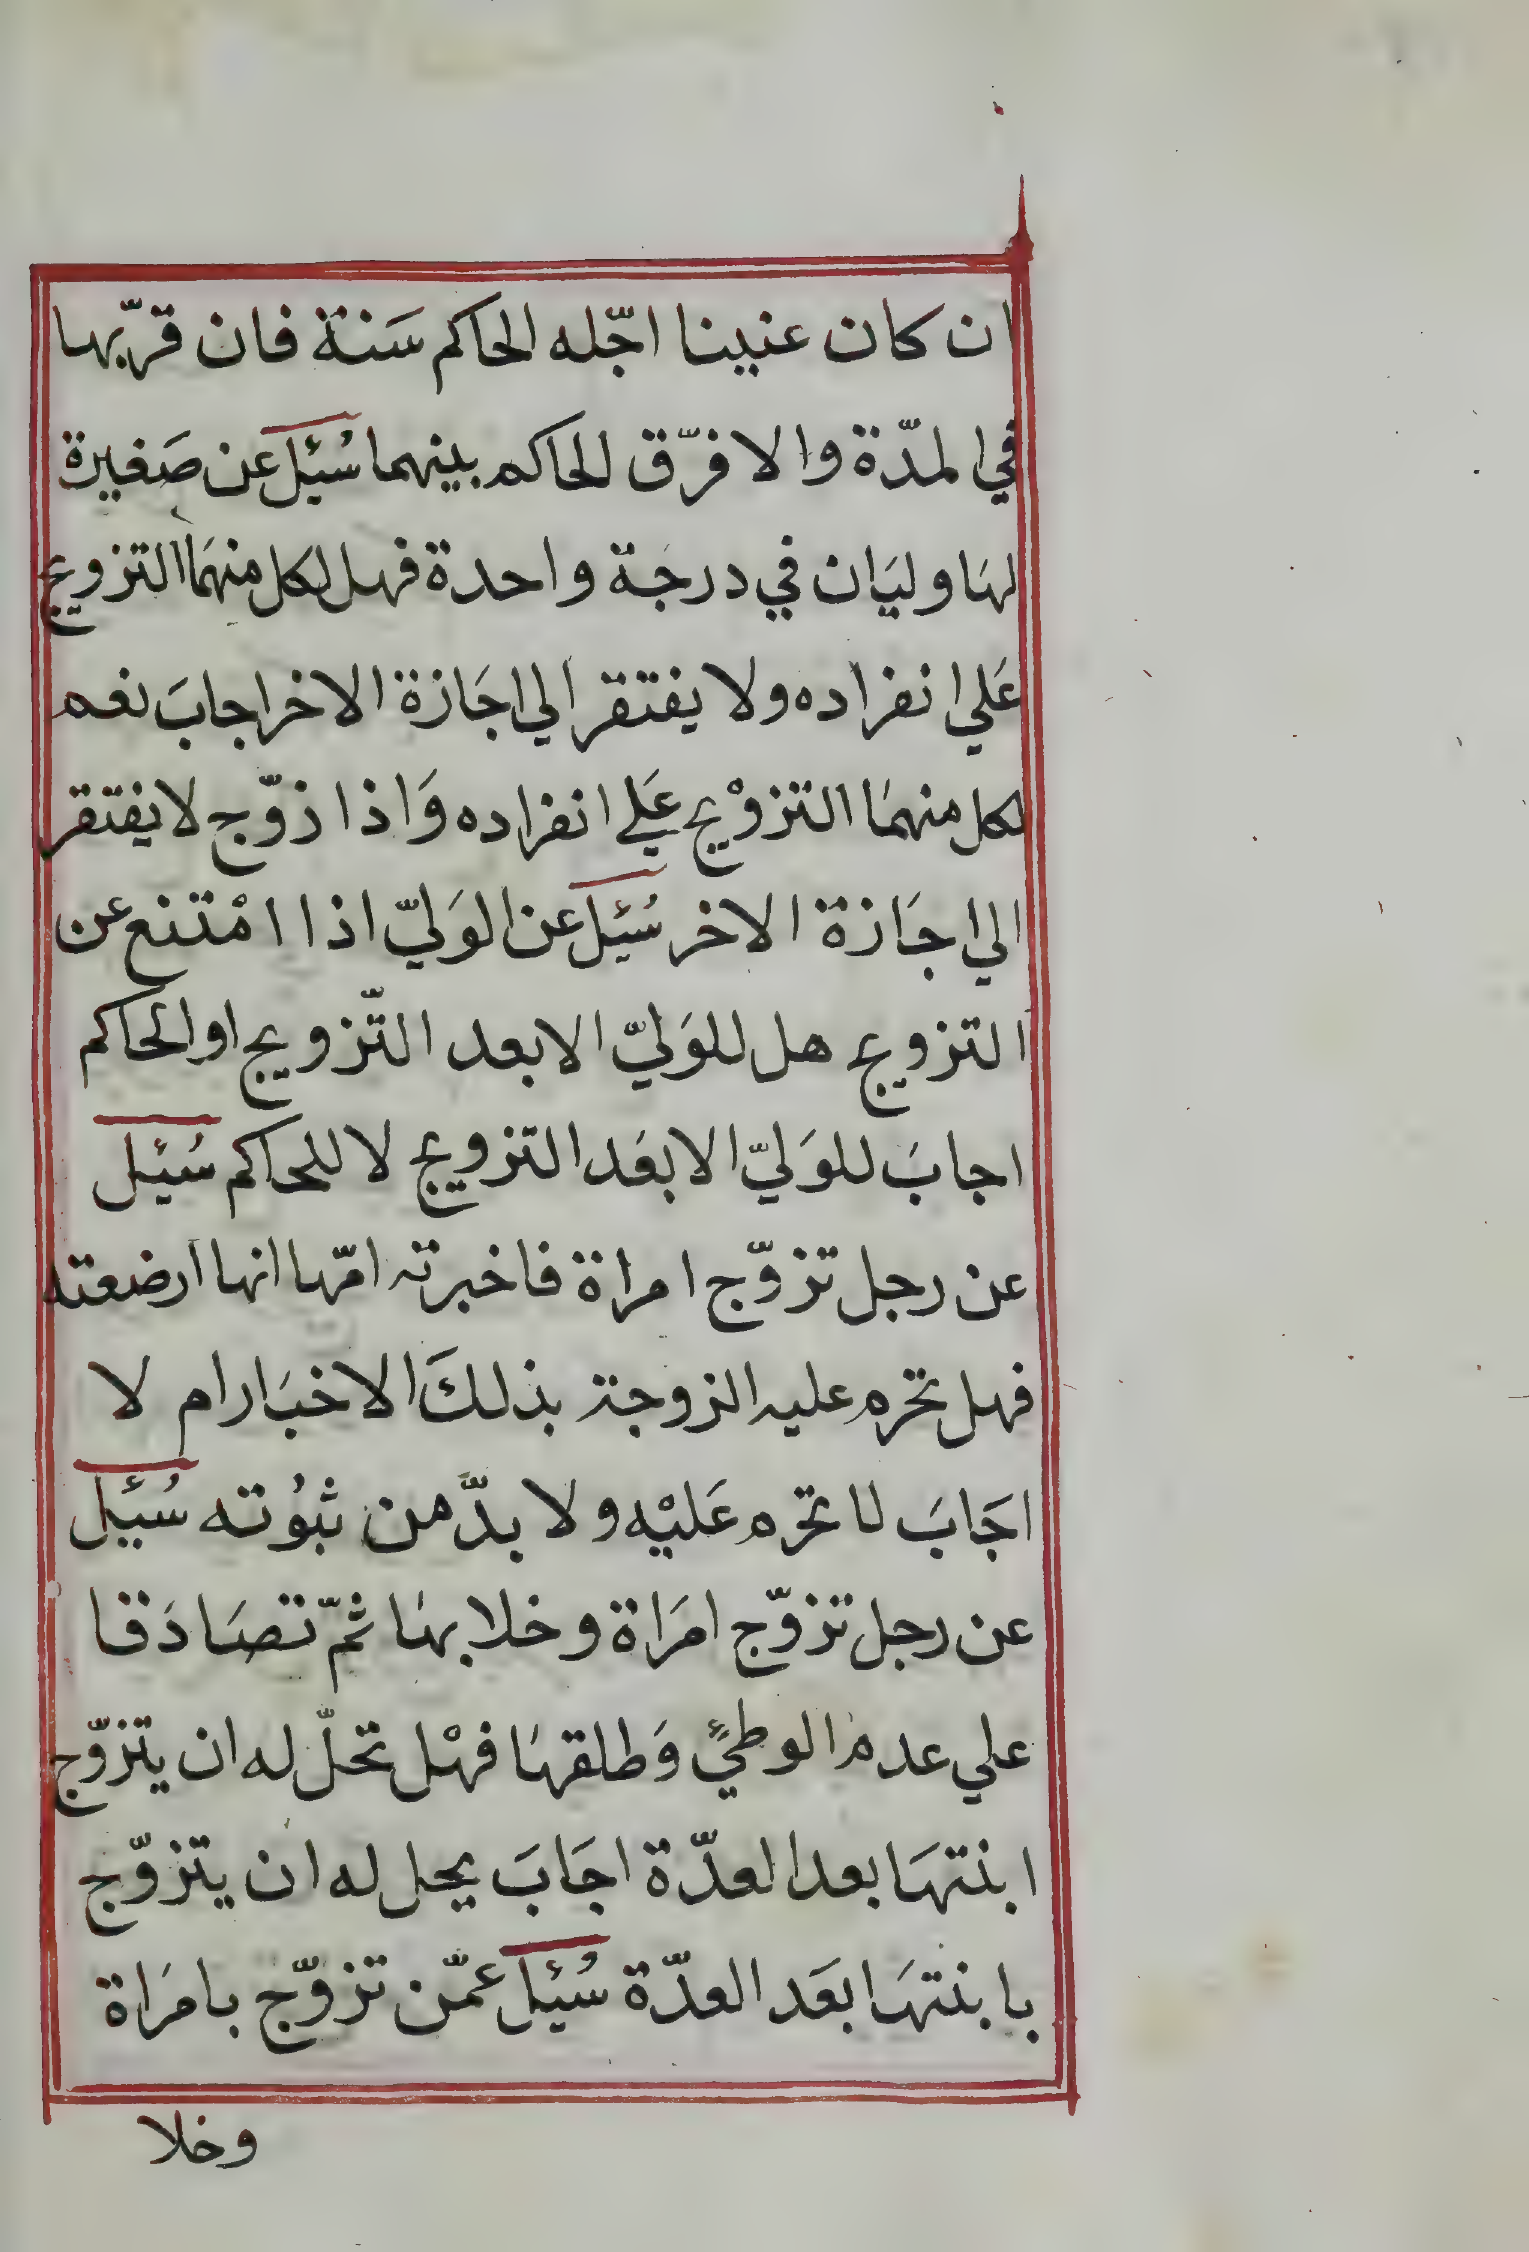 ان كان عنينا اجّله الحاكم سَنة فان قرّبها
في المدّة والا فرّق الحاكم بينهما سُئِل عن صَغيرة
لهَا وليَان في درجَة واحدة فهل لكل منهمَا التزويج
عَلي انفراده ولا يفتقر الي اجَازة الاخر اجابَ نعم
لكل منهمَا التزوْيج عَلي انفراده وَاذا زوّج لا يفتقر
الي اجَازة الاخر سُئِل عن الوَليّ اذا امْتنع عن
التزويج هل للوَليّ الابعد التّزويج او الحاكم
اجابَ للوَليّ الابعَد التزويج لا للحاكم سُئِل
عن رجل تزوّج امراة فاخبرته امّها انها ارضعته
فهل تحرم عليه الزوجة بذلكَ الاخبَار ام لا
اجَابَ لا تحرم عَليْه ولا بدَّ من ثبُوته سُئِل
عن رجل تزوّج امرَاة وخلا بهَا ثمّ تصَادَقا
علي عدم الوطيءِ وَطلقهَا فهْل تحلّ له ان يتزوّج
ابنتهَا بعد العدّة اجَابَ يحل له ان يتزوّج
بابنتهَا بعَد العدّة سُئِل عمّن تزوّج بامرَاة
وخلا